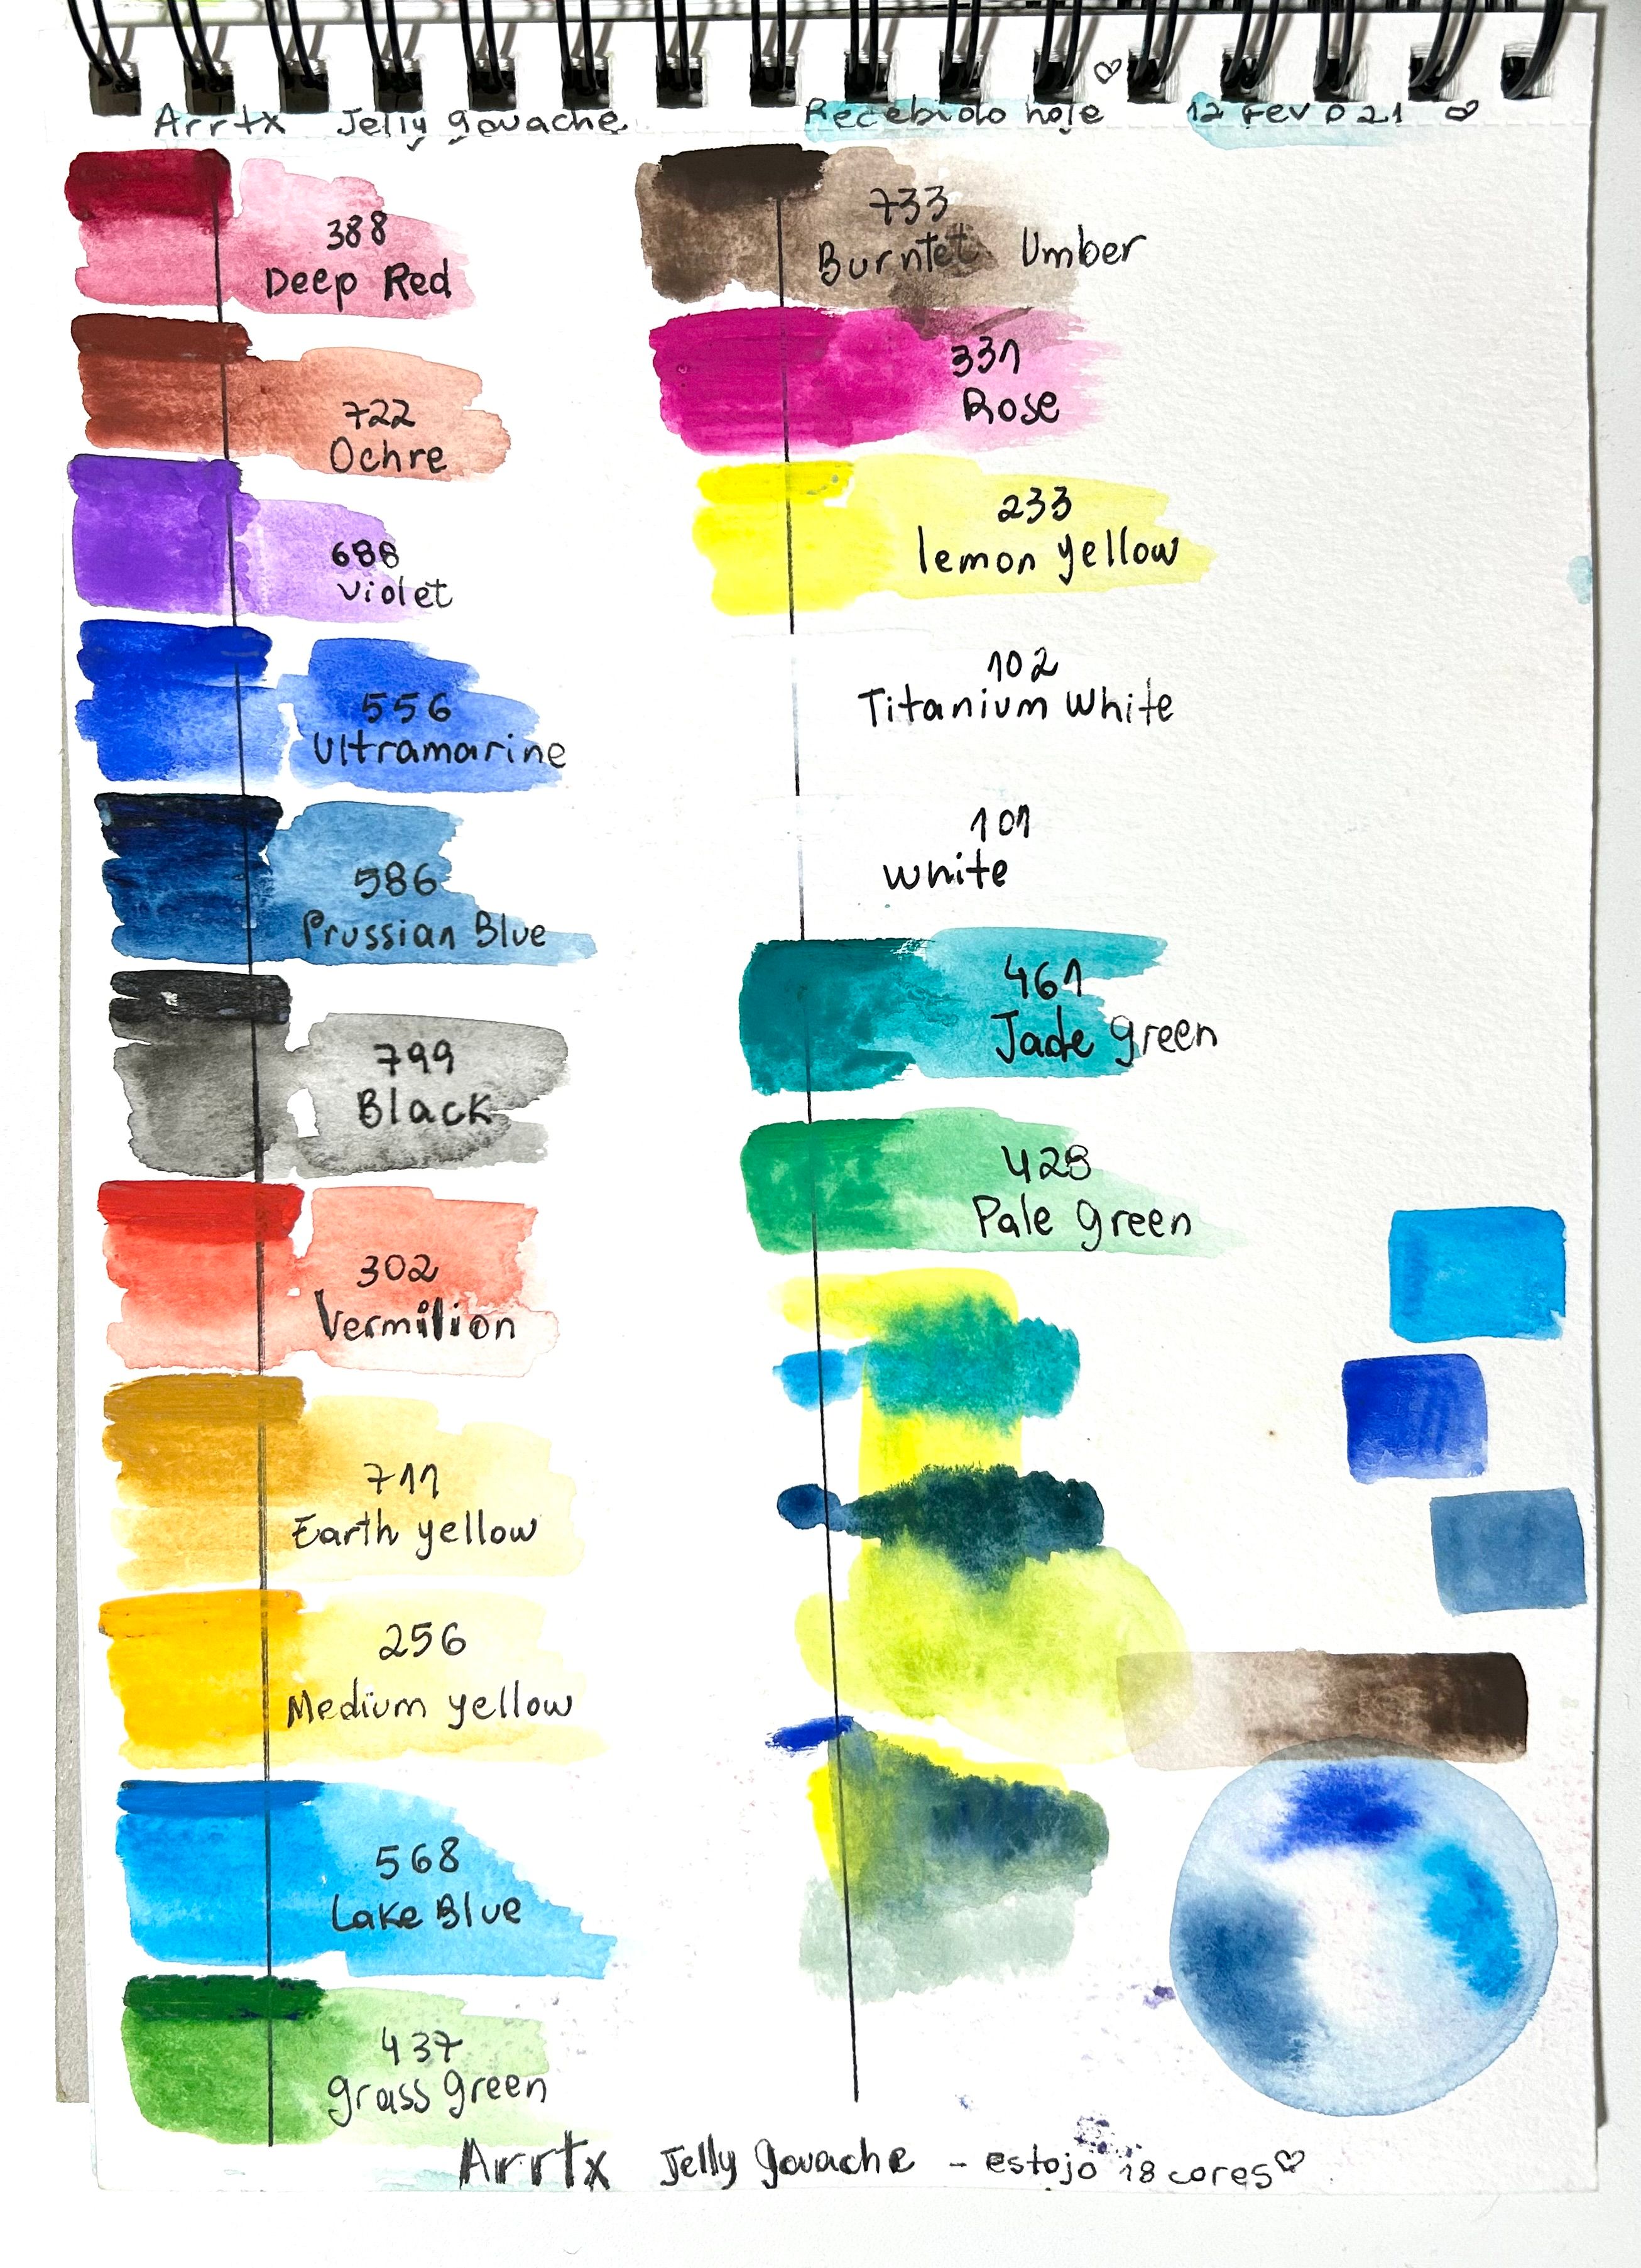 Arrtx Jelly gouache
Recebido hoje ♡ 12 Fev 021 ♡
388
Deep Red
722
Ochre
688
Violet
556
Ultramarine
586
Prussian Blue
799
Black
302
Vermilion
711
Earth yellow
256
Medium yellow
568
Lake Blue
437
grass green
733
Umber
331
Rose
233
lemon yellow
102
Titanium White
101
White
461
Jade green
Pale green
Arrtx Jelly gouache - estojo 18 cores ♡